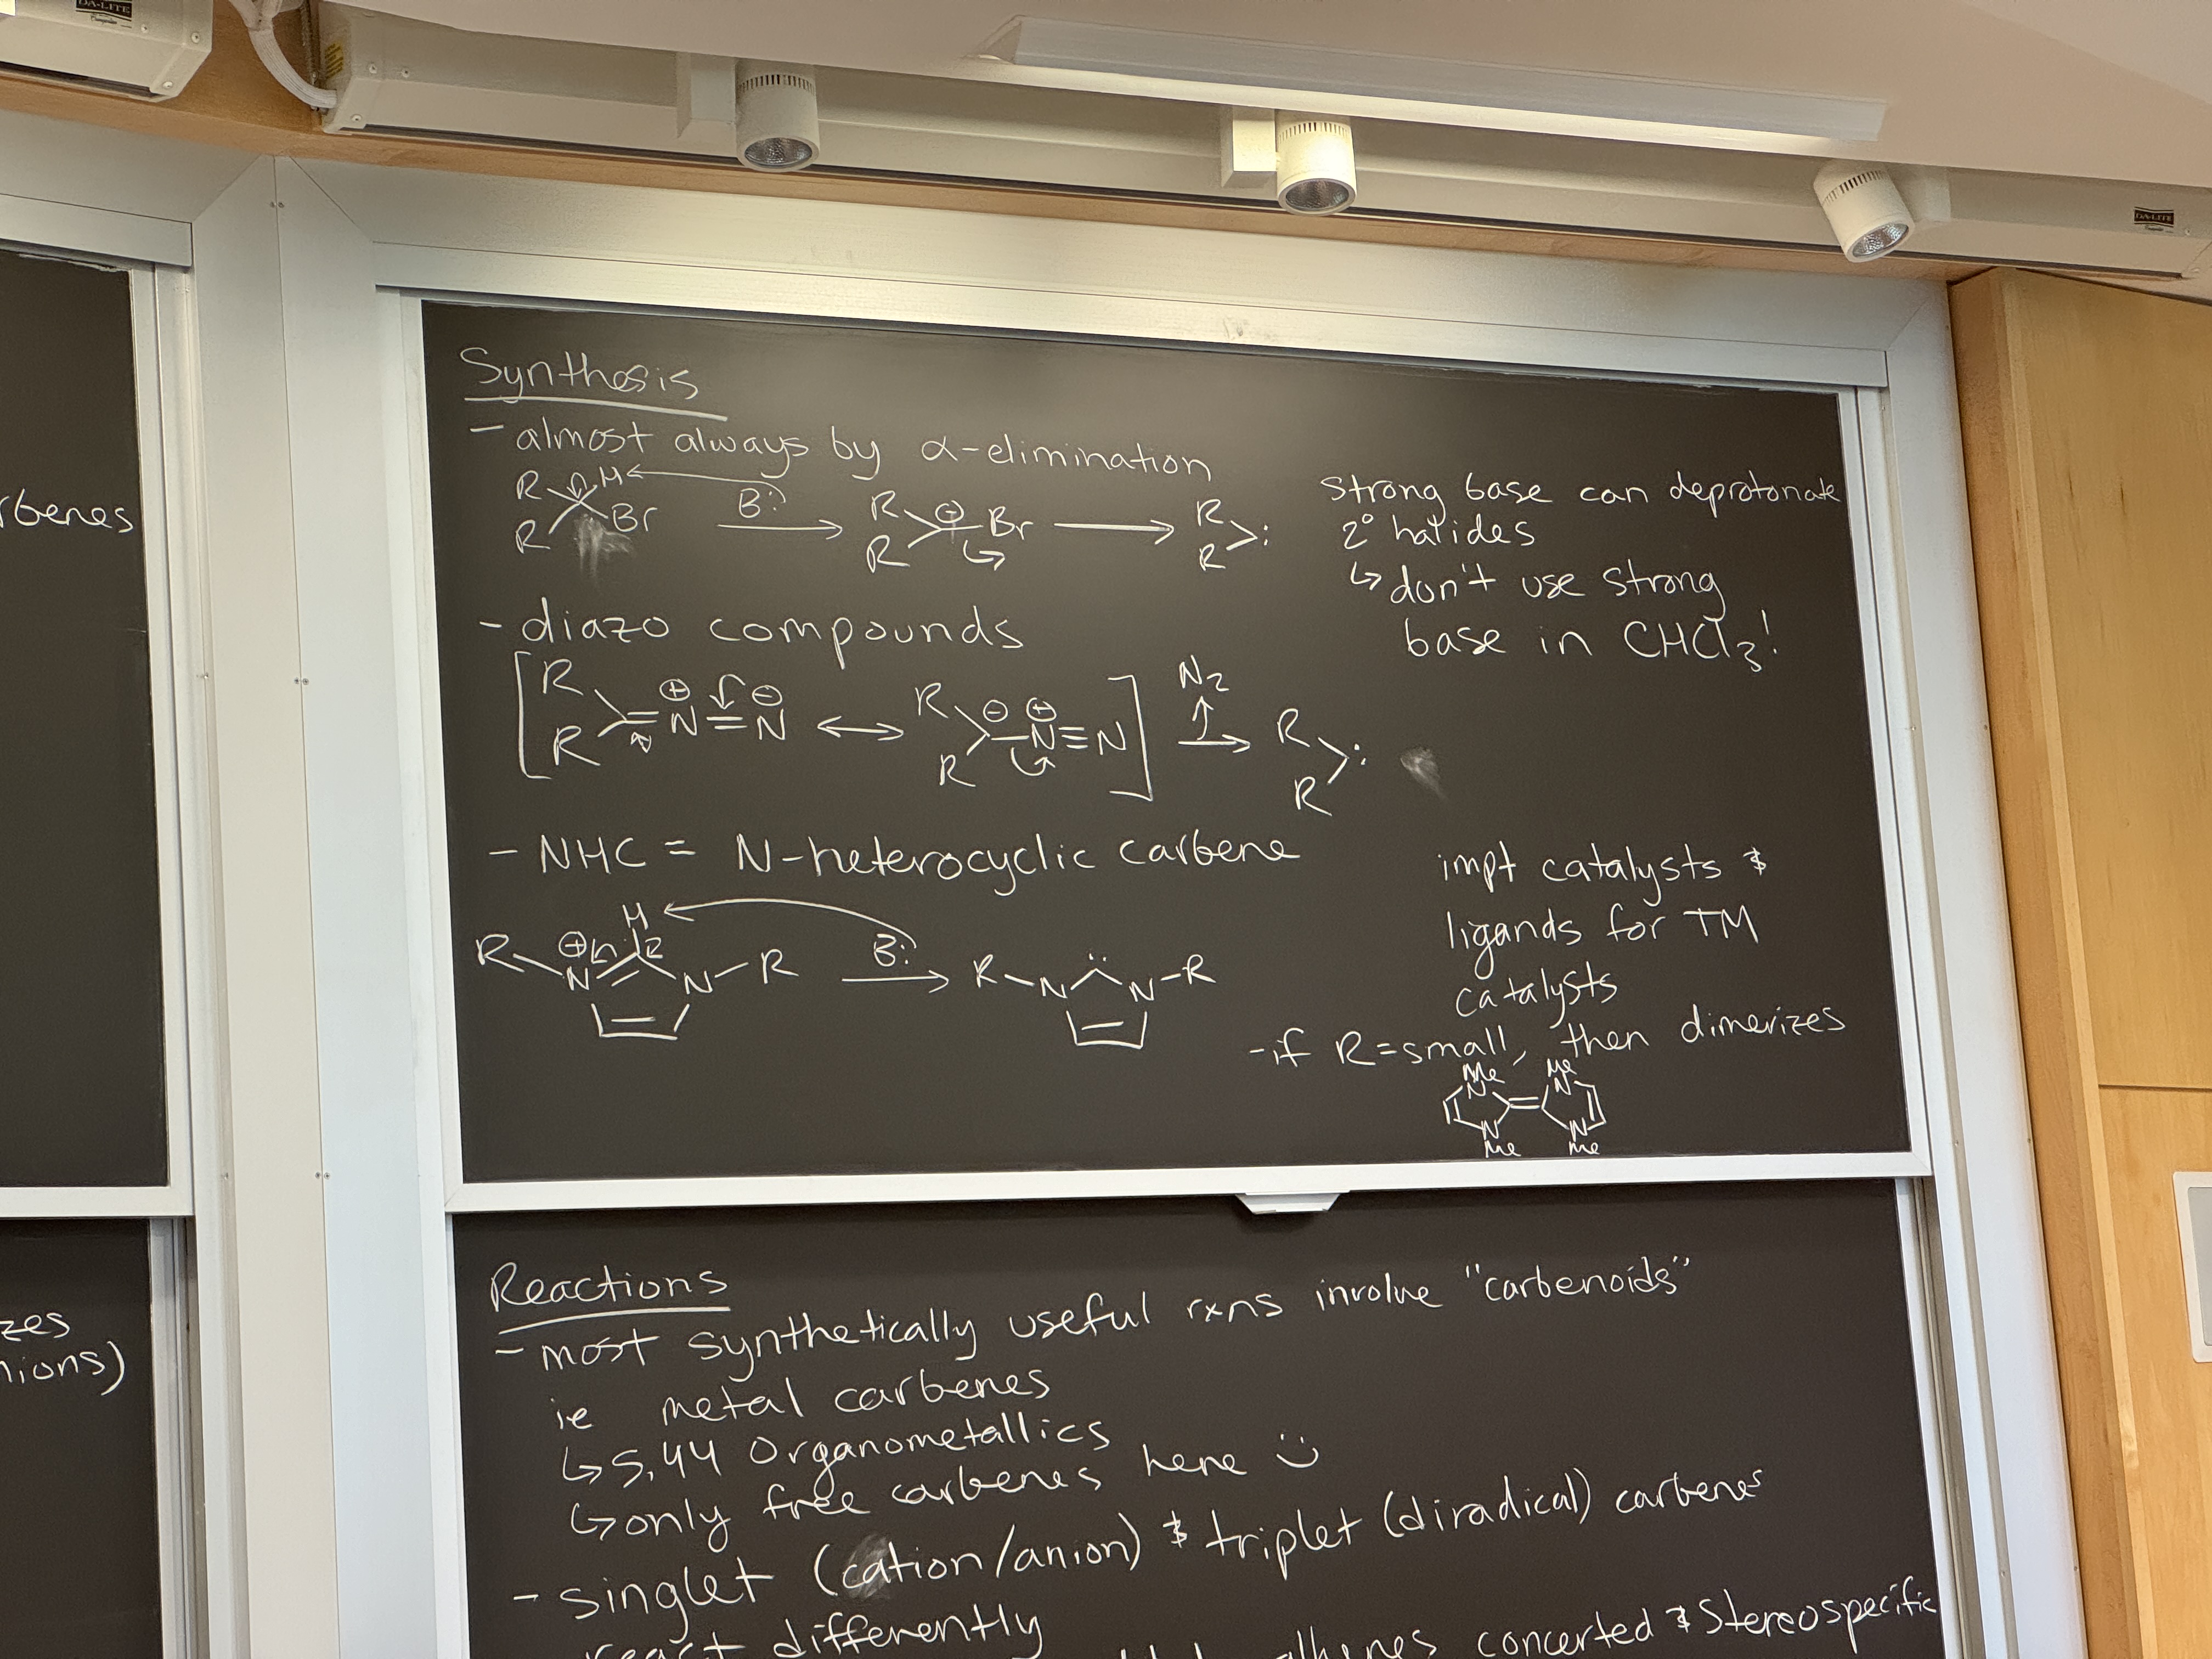 DA-LITE
DA-LITE
rbenes
zes
nions)
Synthesis
- almost always by α-elimination
R H
R Br B: R ⊖ Br R :
R R
strong base can deprotonate
2° halides
↳ don't use strong
base in CHCl3!
- diazo compounds
[R R = N⊕ = N⊖ ↔ R R ⊖ - N⊕ ≡ N] → N2 ↑ R R :
- NHC = N-heterocyclic carbene
H
R N ⊕ N - R B: R - N : N - R
impt catalysts &
ligands for TM
catalysts
- if R = small, then dimerizes
Me Me
N N
N N
Me Me
Reactions
- most synthetically useful rxns involve "carbenoids"
ie metal carbenes
↳ 5.44 Organometallics
↳ only free carbenes here :)
- singlet (cation/anion) & triplet (diradical) carbenes
react differently
alkenes concerted & stereospecific